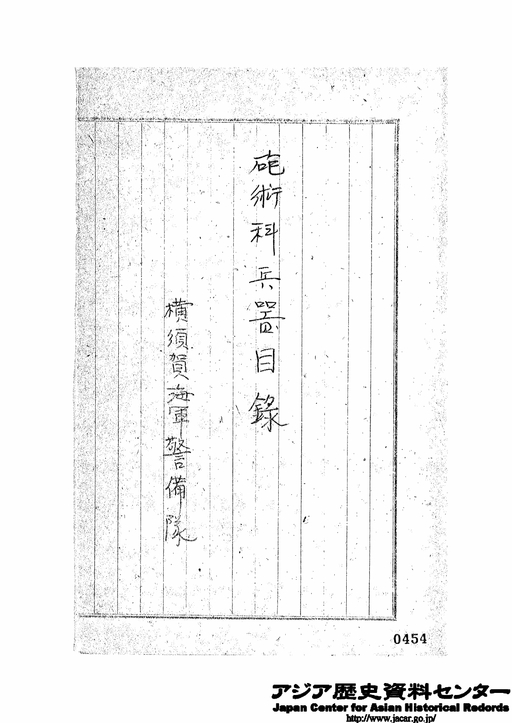 砲術科兵器目録
横須賀海軍警備隊
0454
アジア歴史資料センター
Japan Center for Asian Historical Records
http://www.jacar.go.jp/